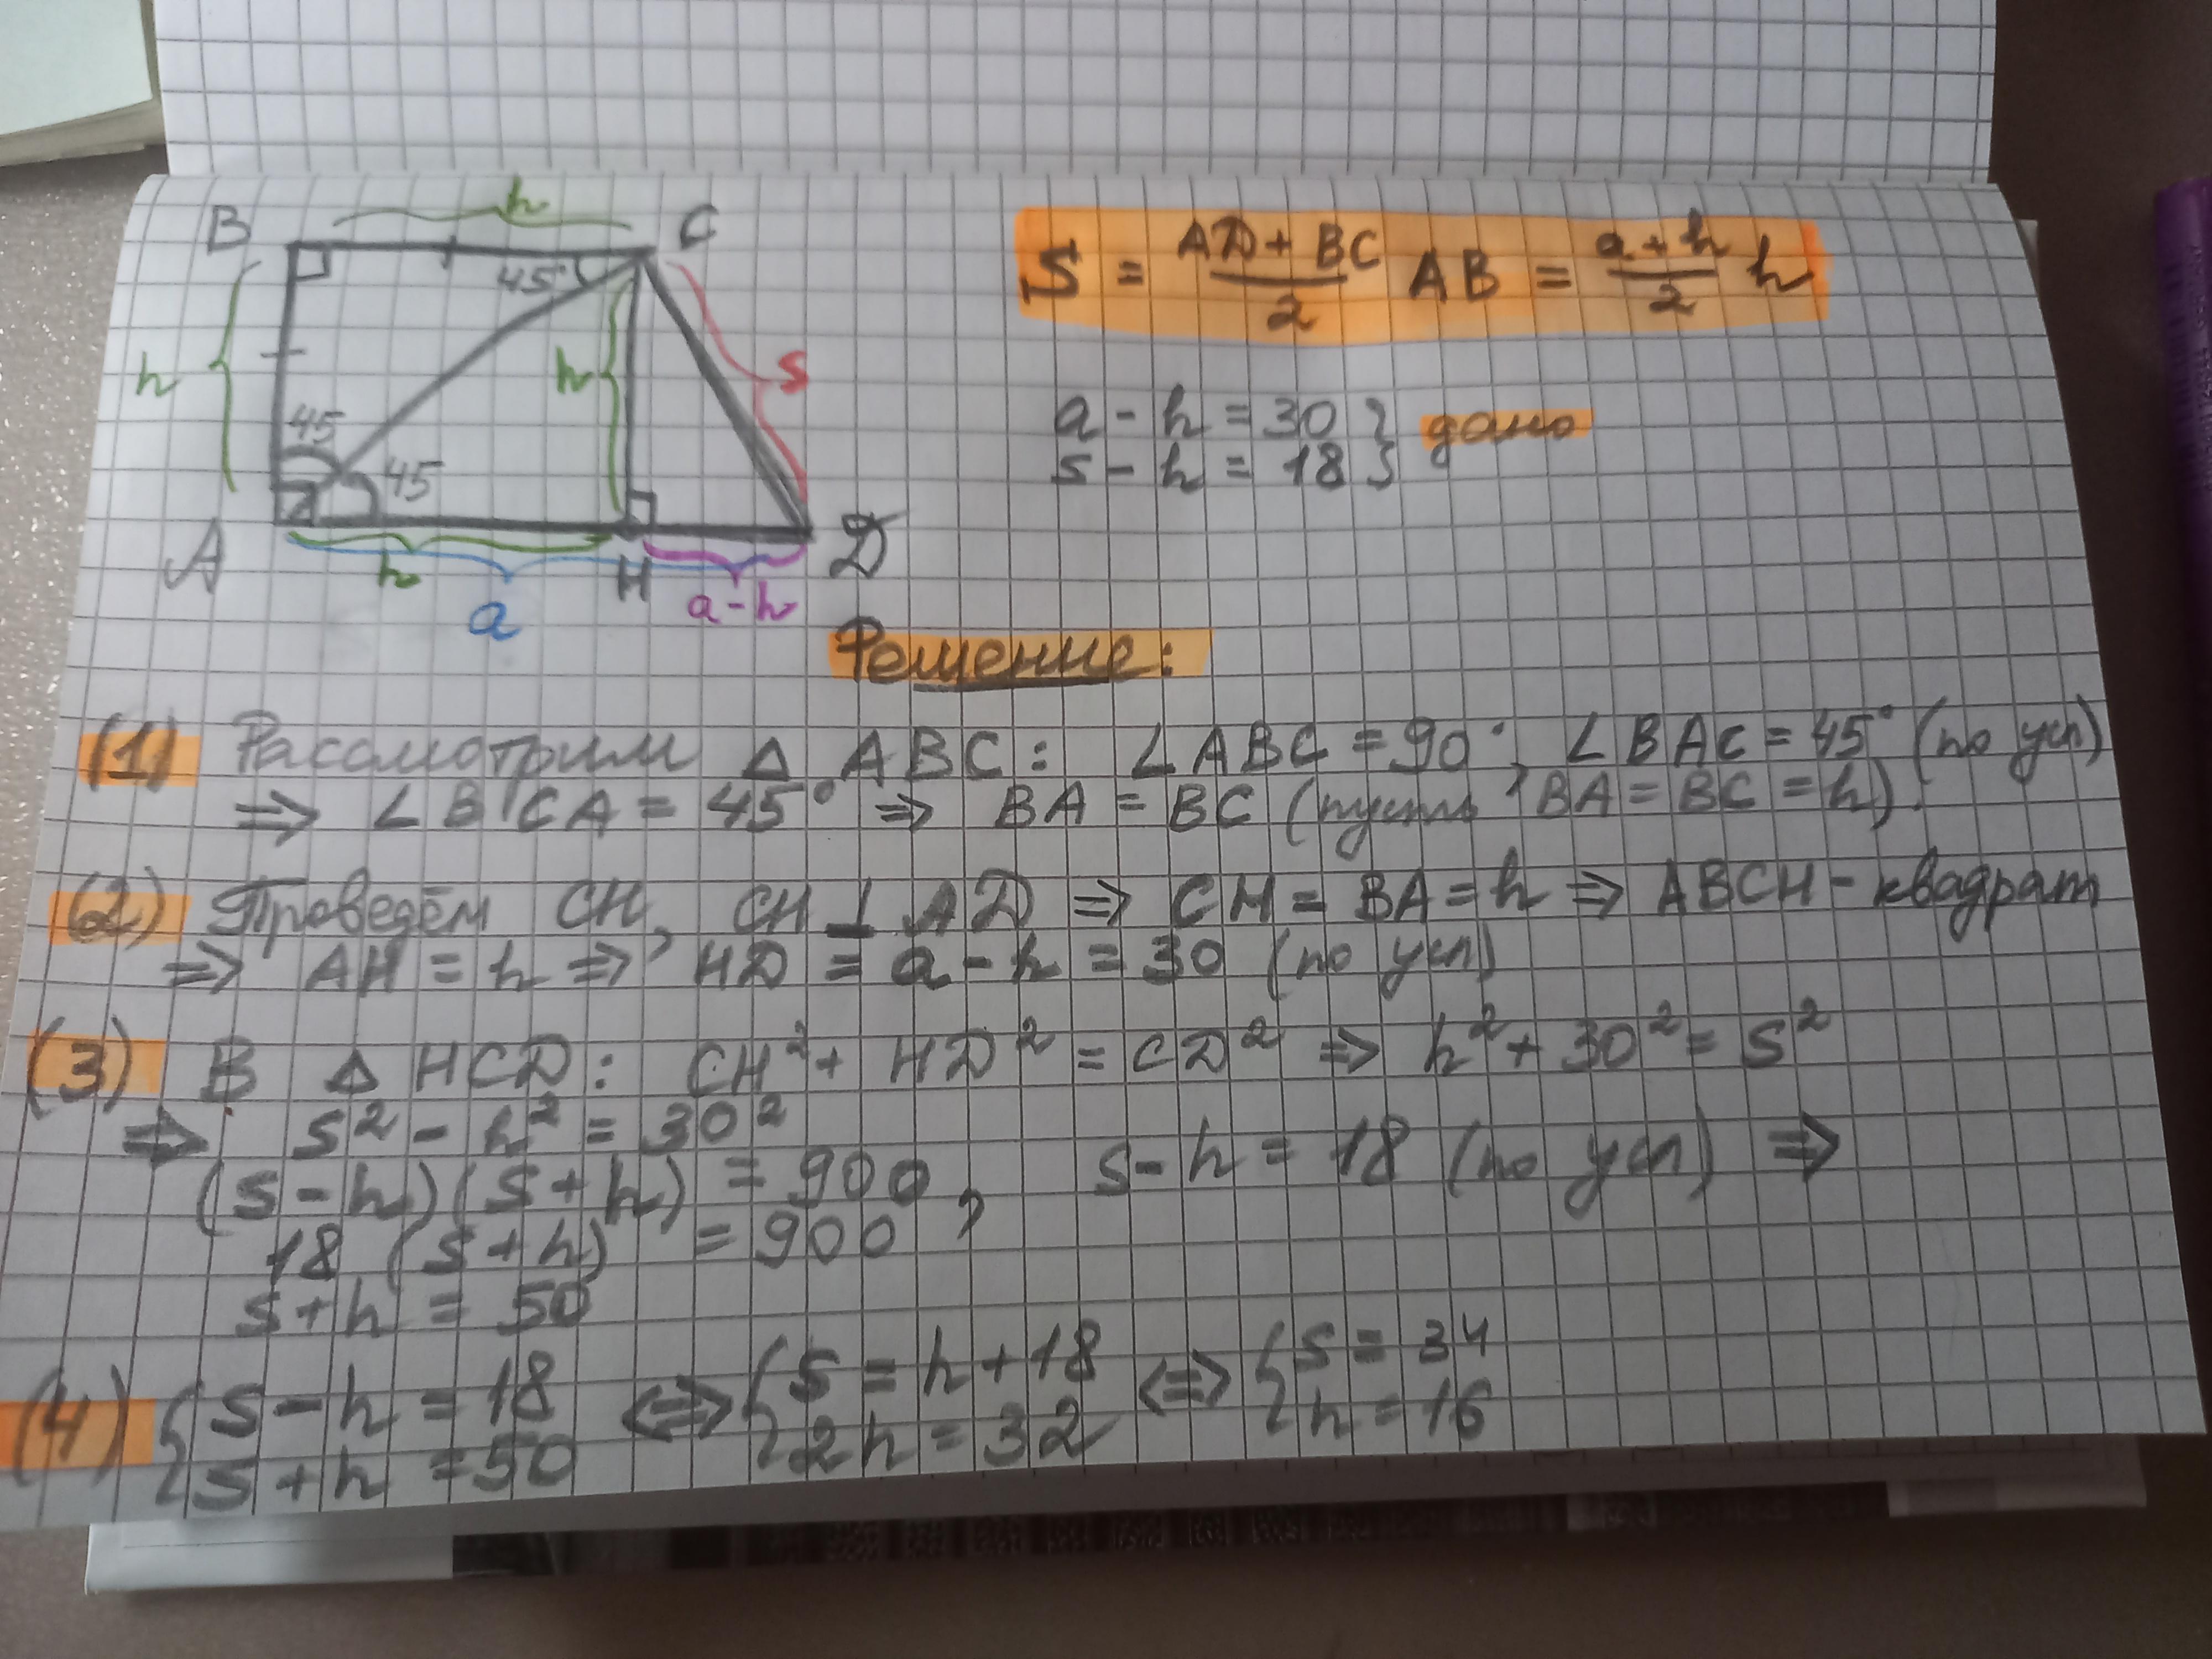 B h C
45°
h h s
45 45
A h H D
a a-h
S = (AD + BC)/2 AB = (a + h)/2 h
a - h = 30 } дано
s - h = 18 }
Решение:
(1) Рассмотрим Δ ABC: ∠ABC = 90°, ∠BAC = 45° (по усл)
⇒ ∠BCA = 45° ⇒ BA = BC (пусть BA = BC = h).
(2) Проведём CH, CH ⊥ AD ⇒ CH = BA = h ⇒ ABCH - квадрат
⇒ AH = h ⇒ HD = a - h = 30 (по усл)
(3) В Δ HCD: CH² + HD² = CD² ⇒ h² + 30² = s²
⇒ s² - h² = 30²
(s - h)(s + h) = 900, s - h = 18 (по усл) ⇒
18 (s + h) = 900
s + h = 50
(4) { s - h = 18 ⇔ { s = h + 18 ⇔ { s = 34
s + h = 50 2h = 32 h = 16